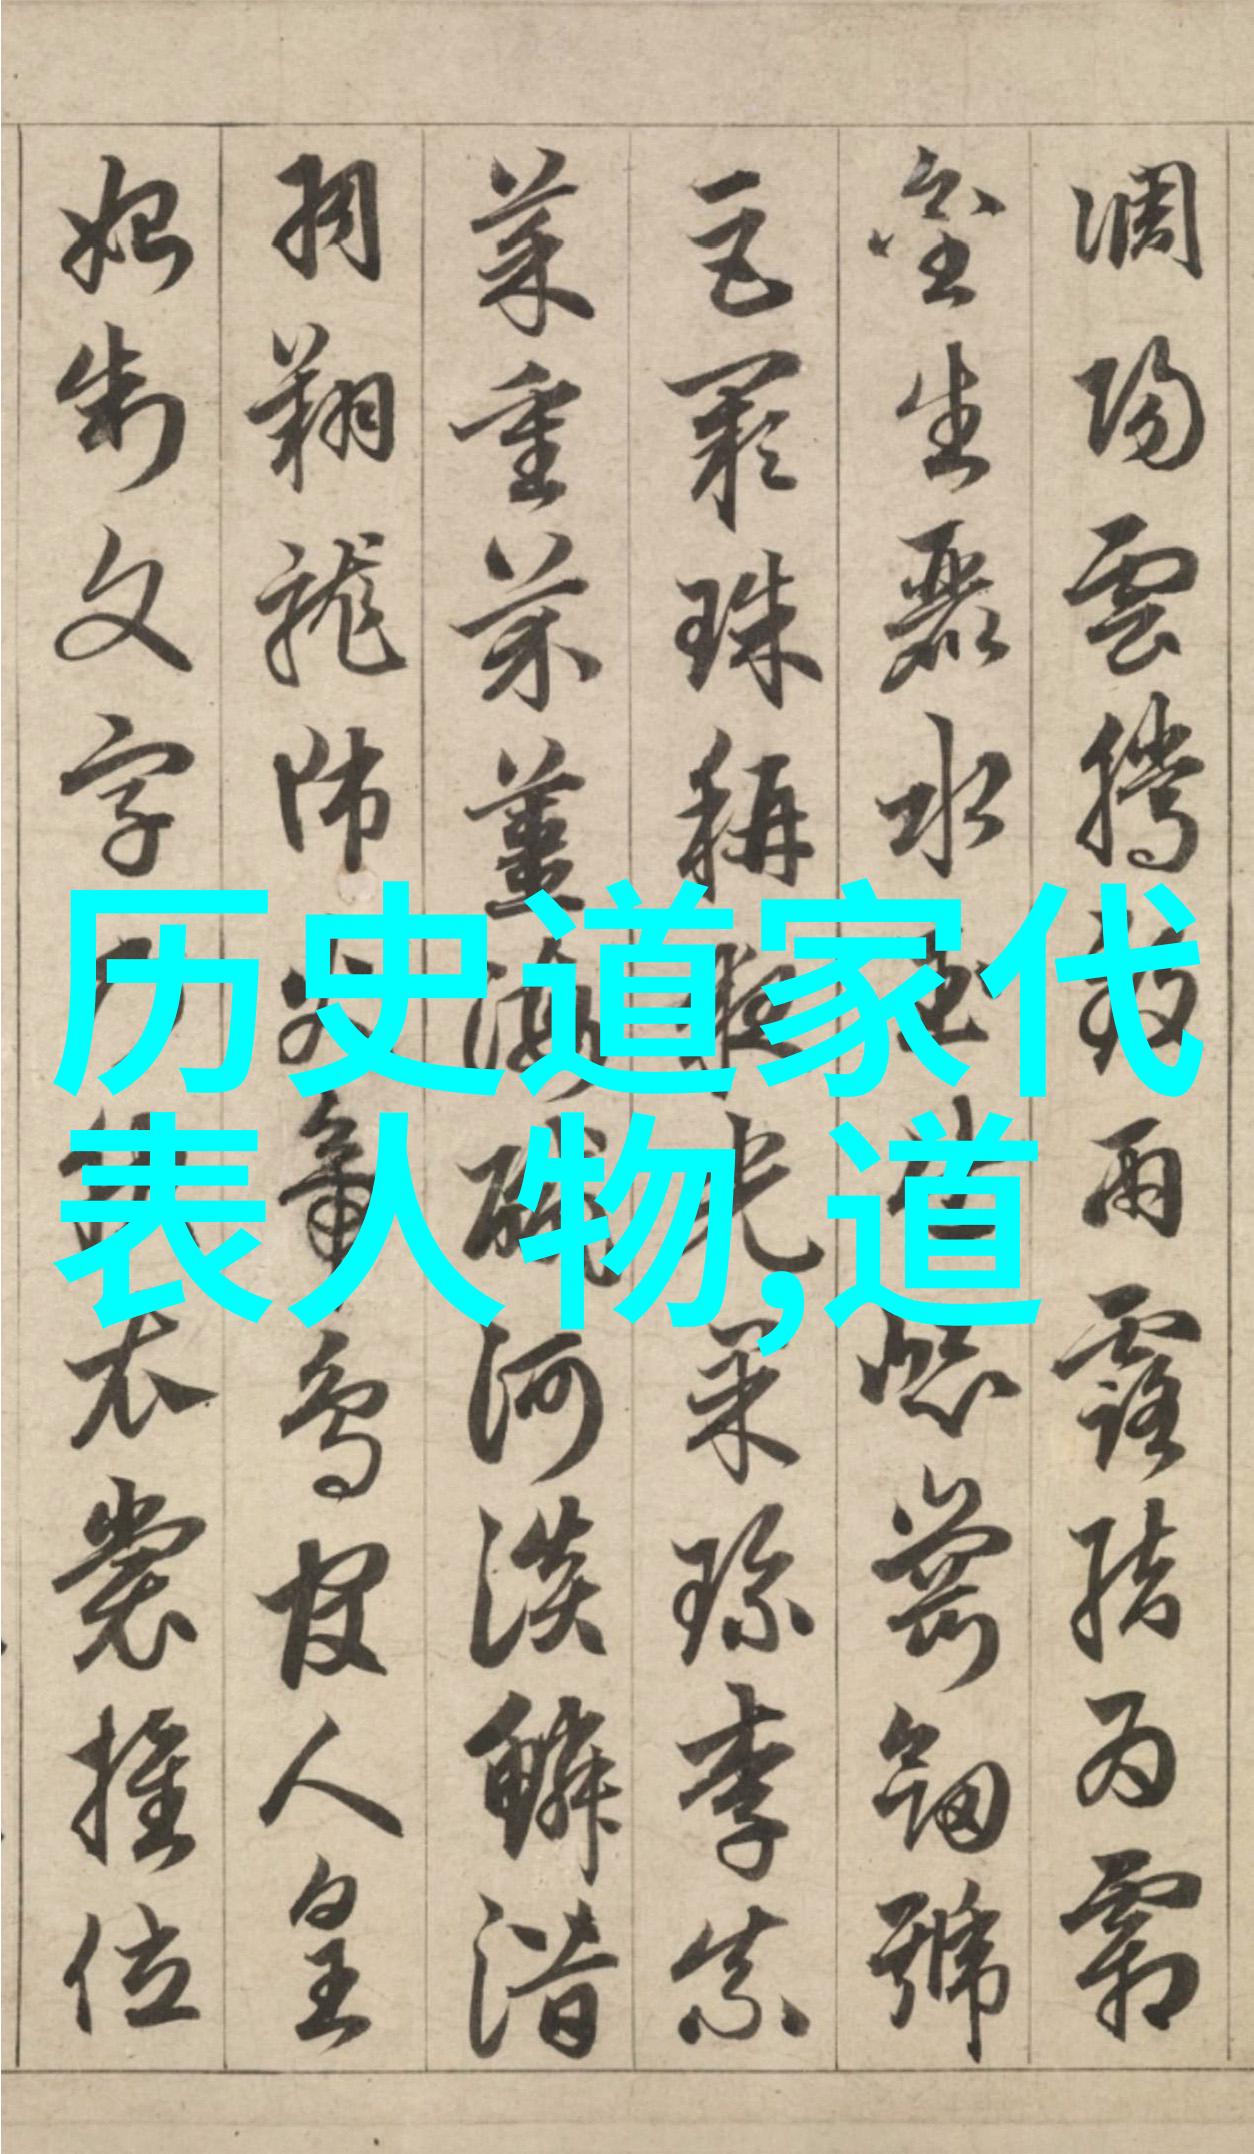 調陽雲騰致雨露結為霜
金生麗水玉出崑崗劍號
巨闕珠稱夜光菓珍李柰
菜重芥薑海鹹河淡鱗潛
羽翔龍師火帝鳥官人皇
始制文字乃服衣裳推位
历史道家代
表人物,道